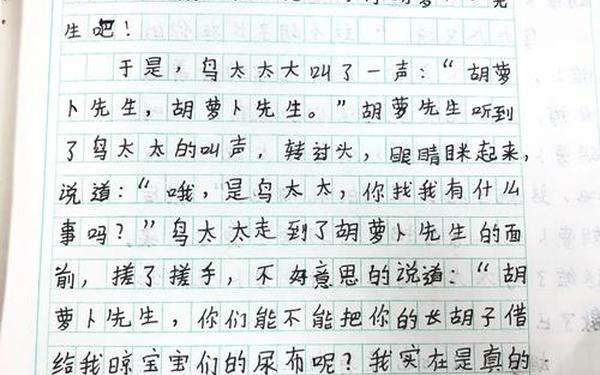 生吧！
于是，鸟太太大叫了一声：“胡萝
卜先生，胡萝卜先生。”胡萝先生听到
了鸟太太的叫声，转过头，眼睛眯起来，
说道：“哦，是鸟太太，你找我有什么
事吗？”鸟太太走到了胡萝卜先生的面
前，搓了搓手，不好意思的说道：“胡
萝卜先生，你们能不能把你的长胡子借
给我晾宝宝们的尿布呢？我实在是真的